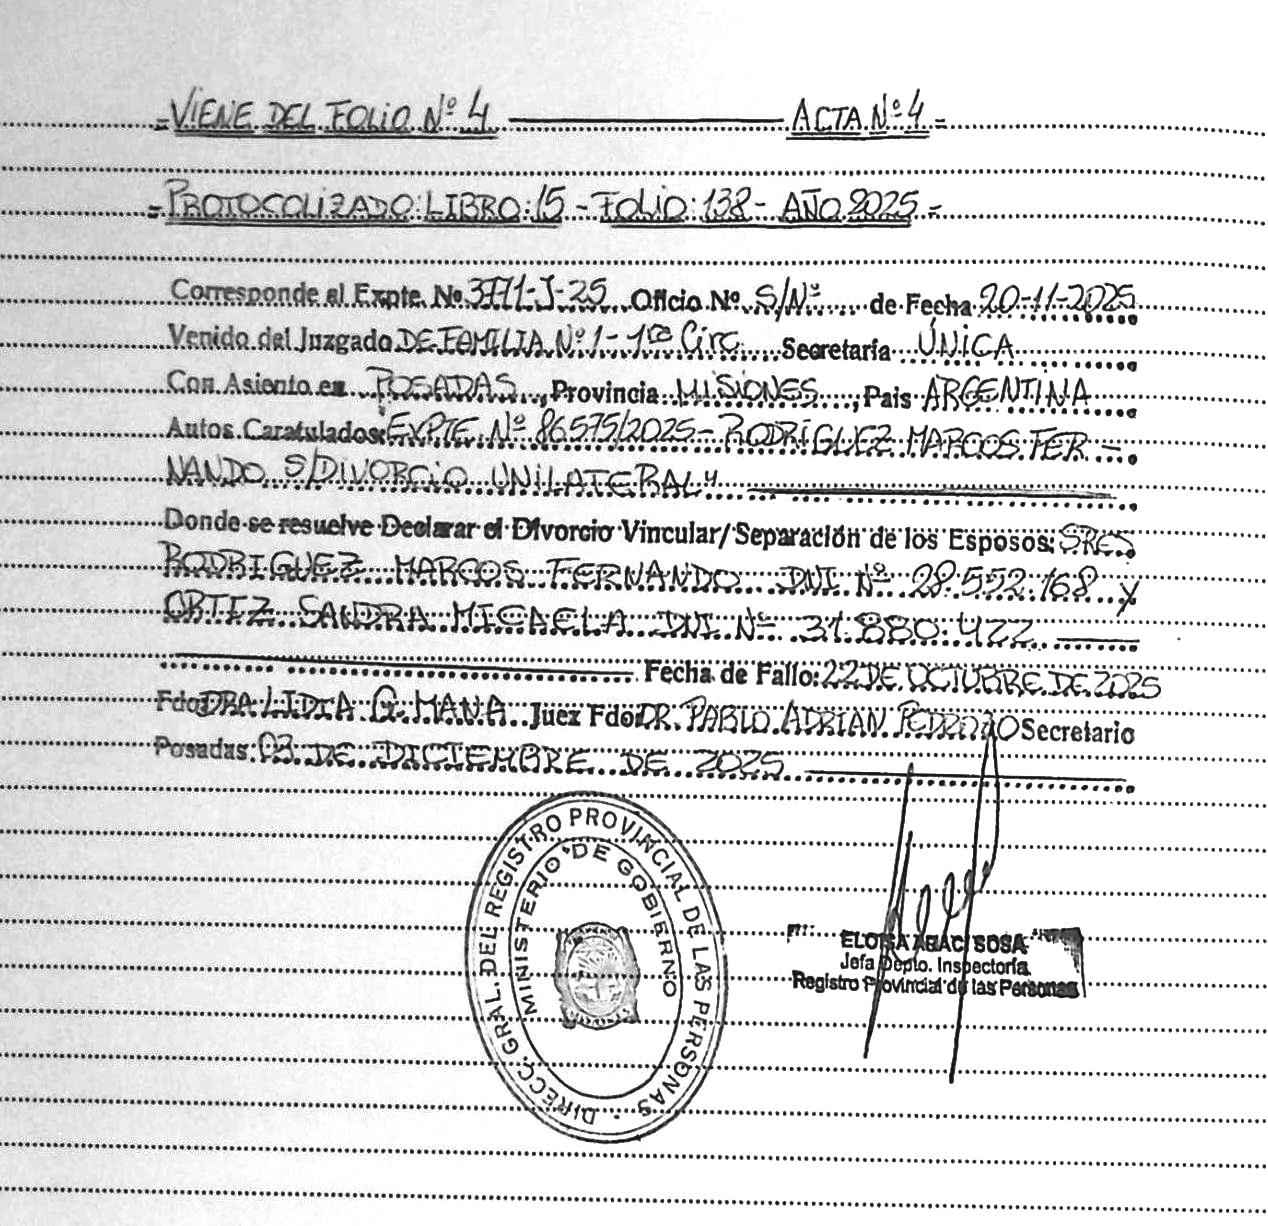 =VIENE DEL FOLIO Nº 4 ACTA Nº 4=
=PROTOCOLIZADO: LIBRO: 15 - FOLIO: 138 - AÑO 2025=
Corresponde al Expte. No 3771-J-25 Oficio Nº S/Nº de Fecha 20-11-2025
Venido del Juzgado DE FAMILIA Nº 1 - 1ra Circ. Secretaría ÚNICA
Con Asiento en POSADAS, Provincia MISIONES, Pais ARGENTINA
Autos Caratulados: EXPTE Nº 86575/2025 - RODRÍGUEZ MARCOS FER-
NANDO S/DIVORCIO UNILATERAL"
Donde se resuelve Declarar el Divorcio Vincular/ Separación de los Esposos: SRES
RODRIGUEZ MARCOS FERNANDO DNI Nº 28.552.168 Y
ORTIZ SANDRA MICAELA DNI Nº 31.880.422
Fecha de Fallo: 22 DE OCTUBRE DE 2025
Fdo DRA LIDIA G. MANA Juez Fdo: DR. PABLO ADRIAN Secretario
Posadas: 03 DE DICIEMBRE DE 2025
DIRECC. GRAL. DEL REGISTRO PROVINCIAL DE LAS PERSONAS
MINISTERIO DE GOBIERNO
ELOISA ABACI SOSA
Jefa Depto. Inspectoría
Registro Provincial de las Personas